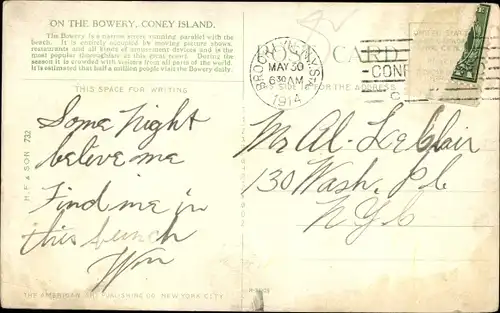 ON THE BOWERY, CONEY ISLAND.
The Bowery is a narrow street running parallel with the
beach. It is entirely occupied by moving picture shows,
restaurants and all kinds of amusement devices and is the
most popular thoroughfare in this great resort. During the
season it is crowded with visitors from all parts of the world.
It is estimated that half a million people visit the Bowery daily.
CARD
BROOKLYN, N.Y. STA.
MAY 30
630 AM
1914
THIS SPACE FOR WRITING
THIS SIDE IS FOR THE ADDRESS
Some Night
beleve me
Find me in
this bunch
Wm
Mr Al. Leblair
130 Wash. Pl.
N.Y.C
H. F. & SON 732
THE AMERICAN ART PUBLISHING CO. NEW YORK CITY